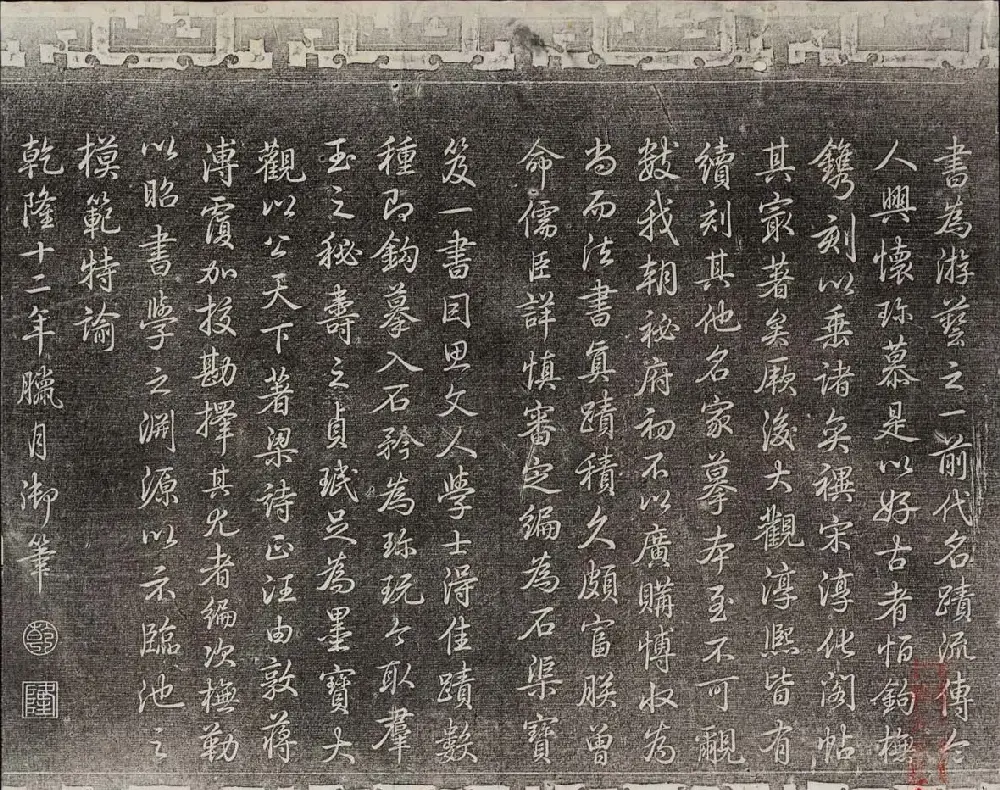 書為游藝之一前代名蹟流傳令
人興懷珍慕是以好古者恒鉤橅
鐫刻以垂諸奕禩宋淳化閣帖
其最著矣厥後大觀淳熙皆有
續刻其他名家摹本至不可覼
數我朝祕府初不以廣購博收為
尚而法書真蹟積久頗富朕曾
命儒臣詳慎審定編為石渠寶
笈一書因思文人學士得佳蹟數
種即鉤摹入石矜為珍玩今取羣
玉之秘壽之貞珉足為墨寶大
觀以公天下著梁詩正汪由敦蔣
溥覆加挍勘擇其尤者編次橅勒
以昭書學之淵源以示臨池之
模範特諭
乾隆十二年臘月御筆
乾
隆